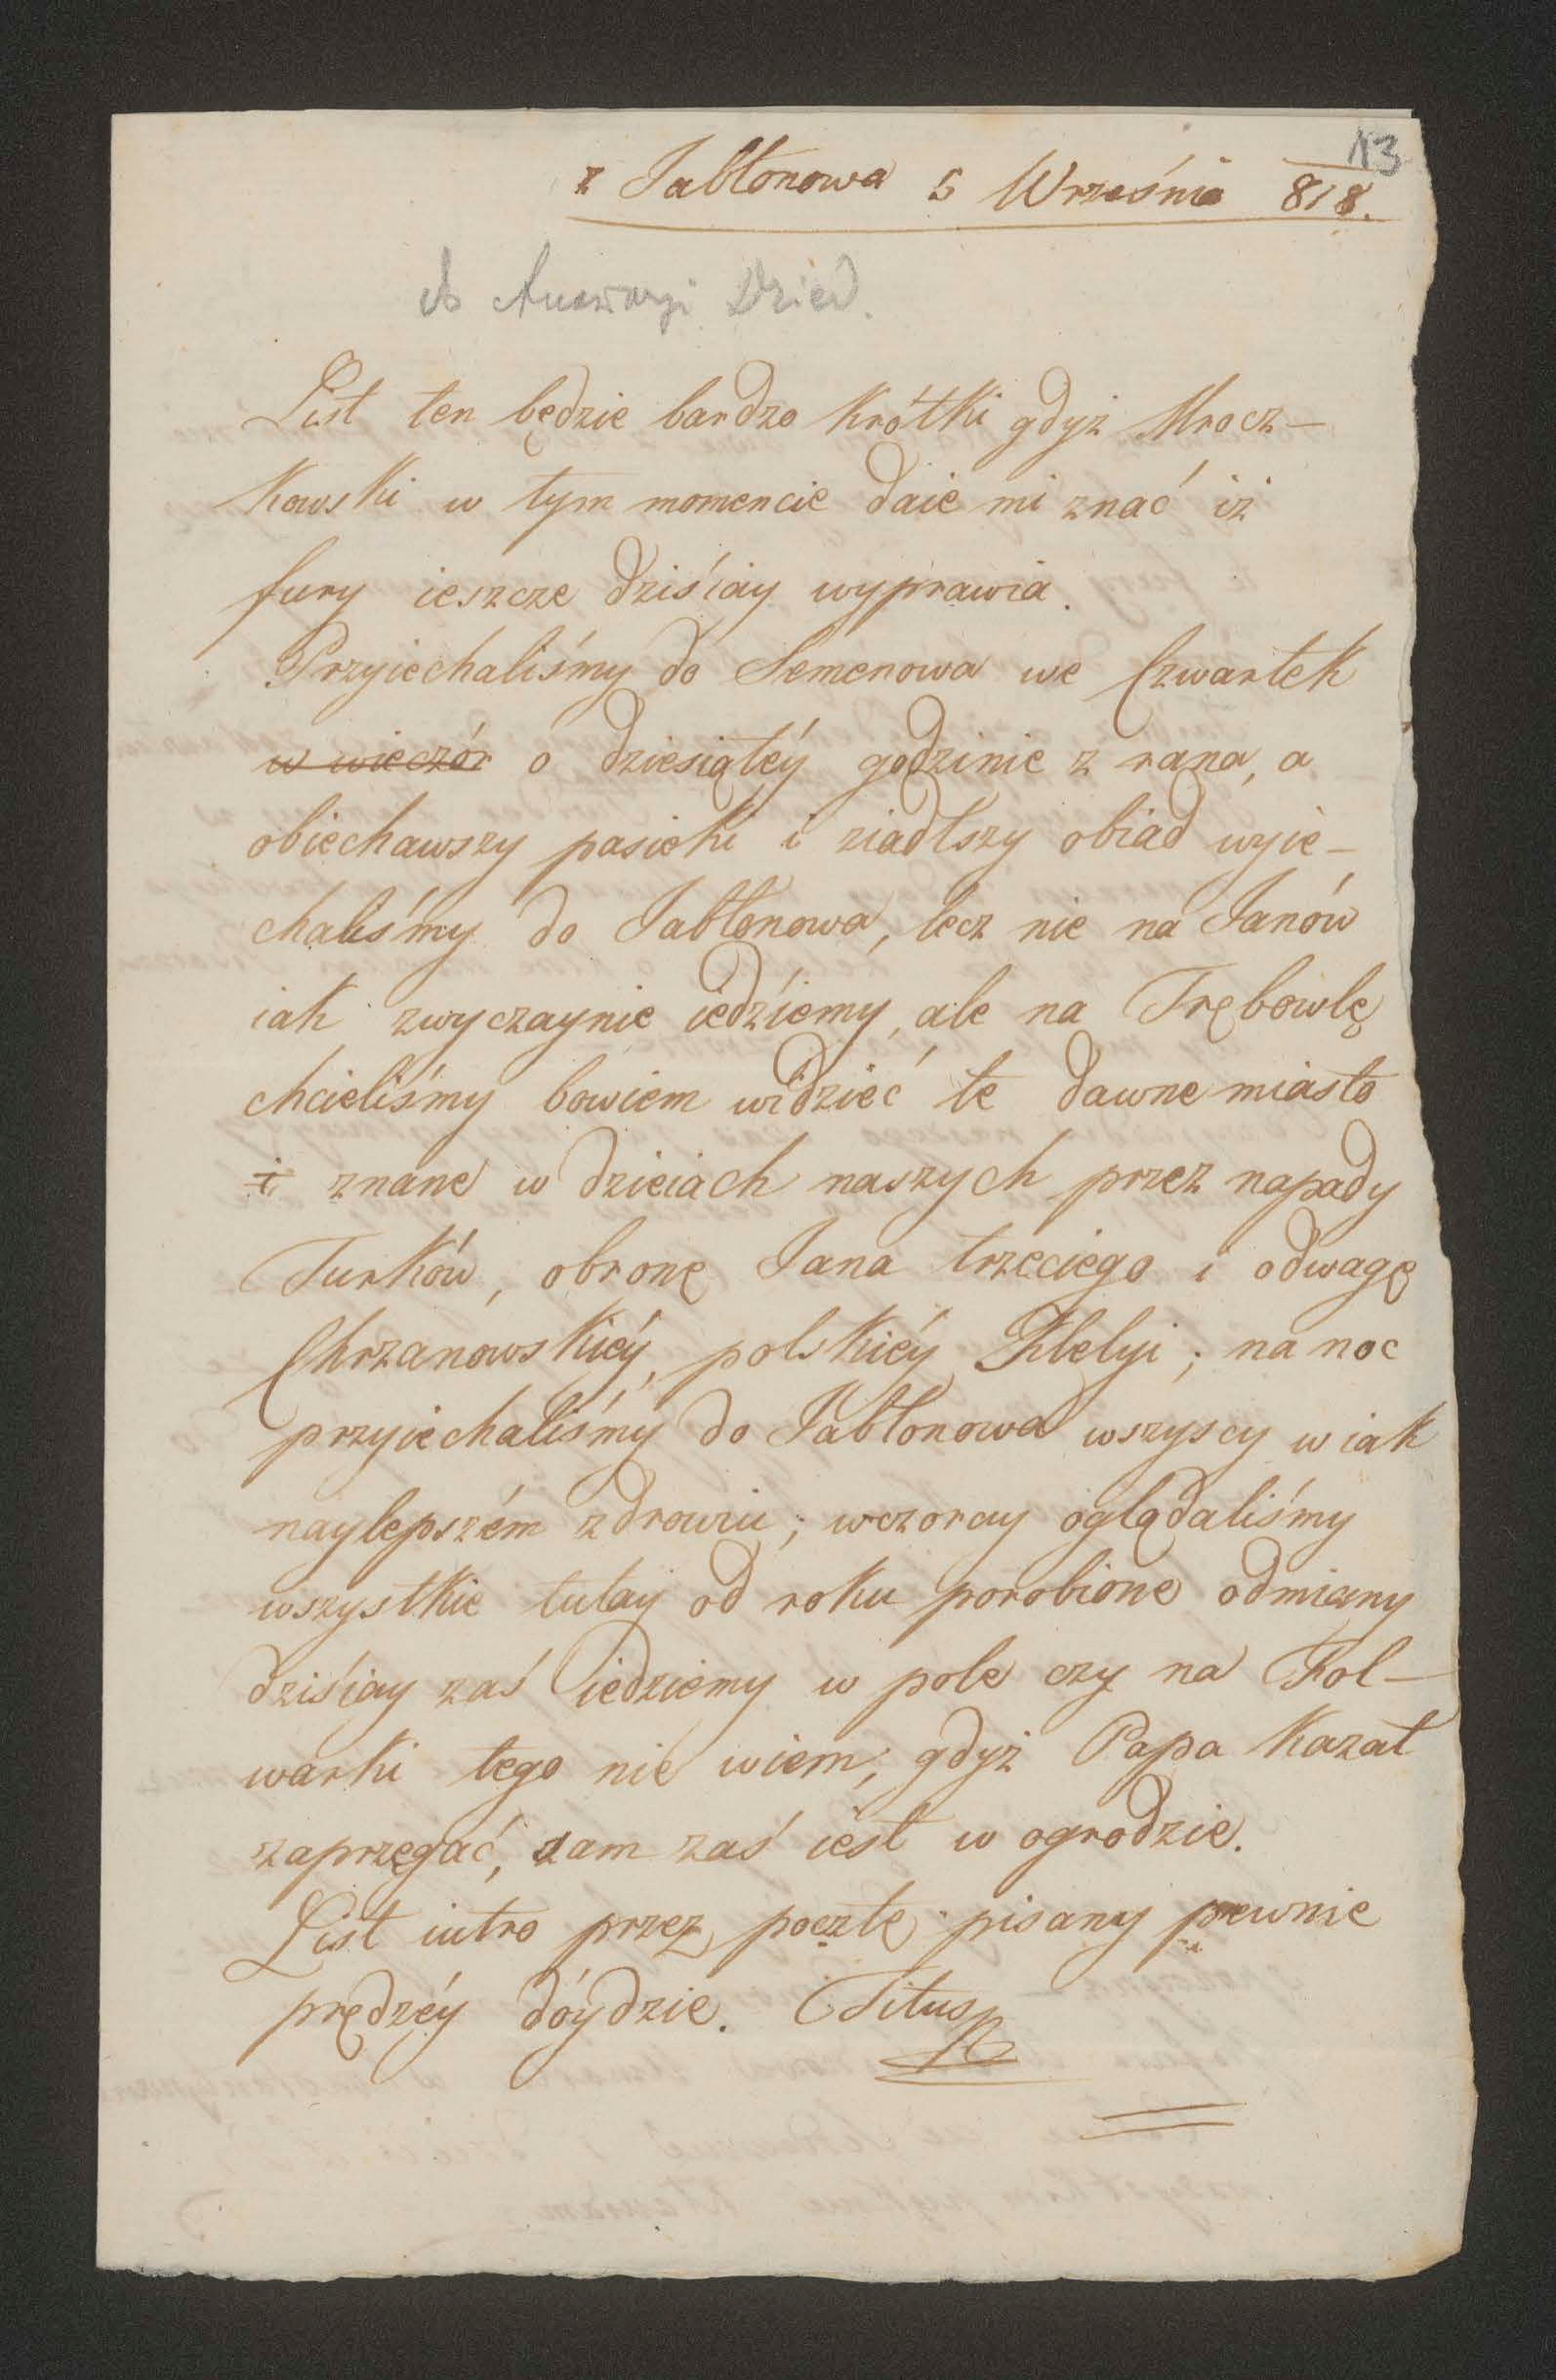 13
z Jabłonowa 5 Września 818.
Dzied.
List ten będzie bardzo krótki gdyż Mrocz-
kowski w tym momencie daie mi znać iż
fury ieszcze dziśiay wyprawia.
Przyiechaliśmy do Semenowa we Czwartek
w wieczór o dziesiątéy godzinie z rana, a
obiechawszy pasieki i ziadłszy obiad wyie-
chaliśmy do Jabłonowa, lecz nie na Janów
iak zwyczaynie iedźiemy, ale na Trębowlę
chcieliśmy bowiem widzieć te dawne miasto
i znane w dzieiach naszych przez napady
Turków, obronę Jana trzeciego i odwagę
Chrzanowskiéy, polskiéy Klelyi; na noc
przyiechaliśmy do Jabłonowa wszyscy w iak
naylepszém zdrowiu; wczoray oglądaliśmy
wszystkie tutay od roku porobione odmiany
dziśiay zaś iedziemy w pole czy na Fol-
warki tego nie wiem; gdyż Papa kazał
zaprzęgać, sam zaś iest w ogrodzie.
List iutro przez pocztę pisany pewnie
prędzéy dóydzie. Titus